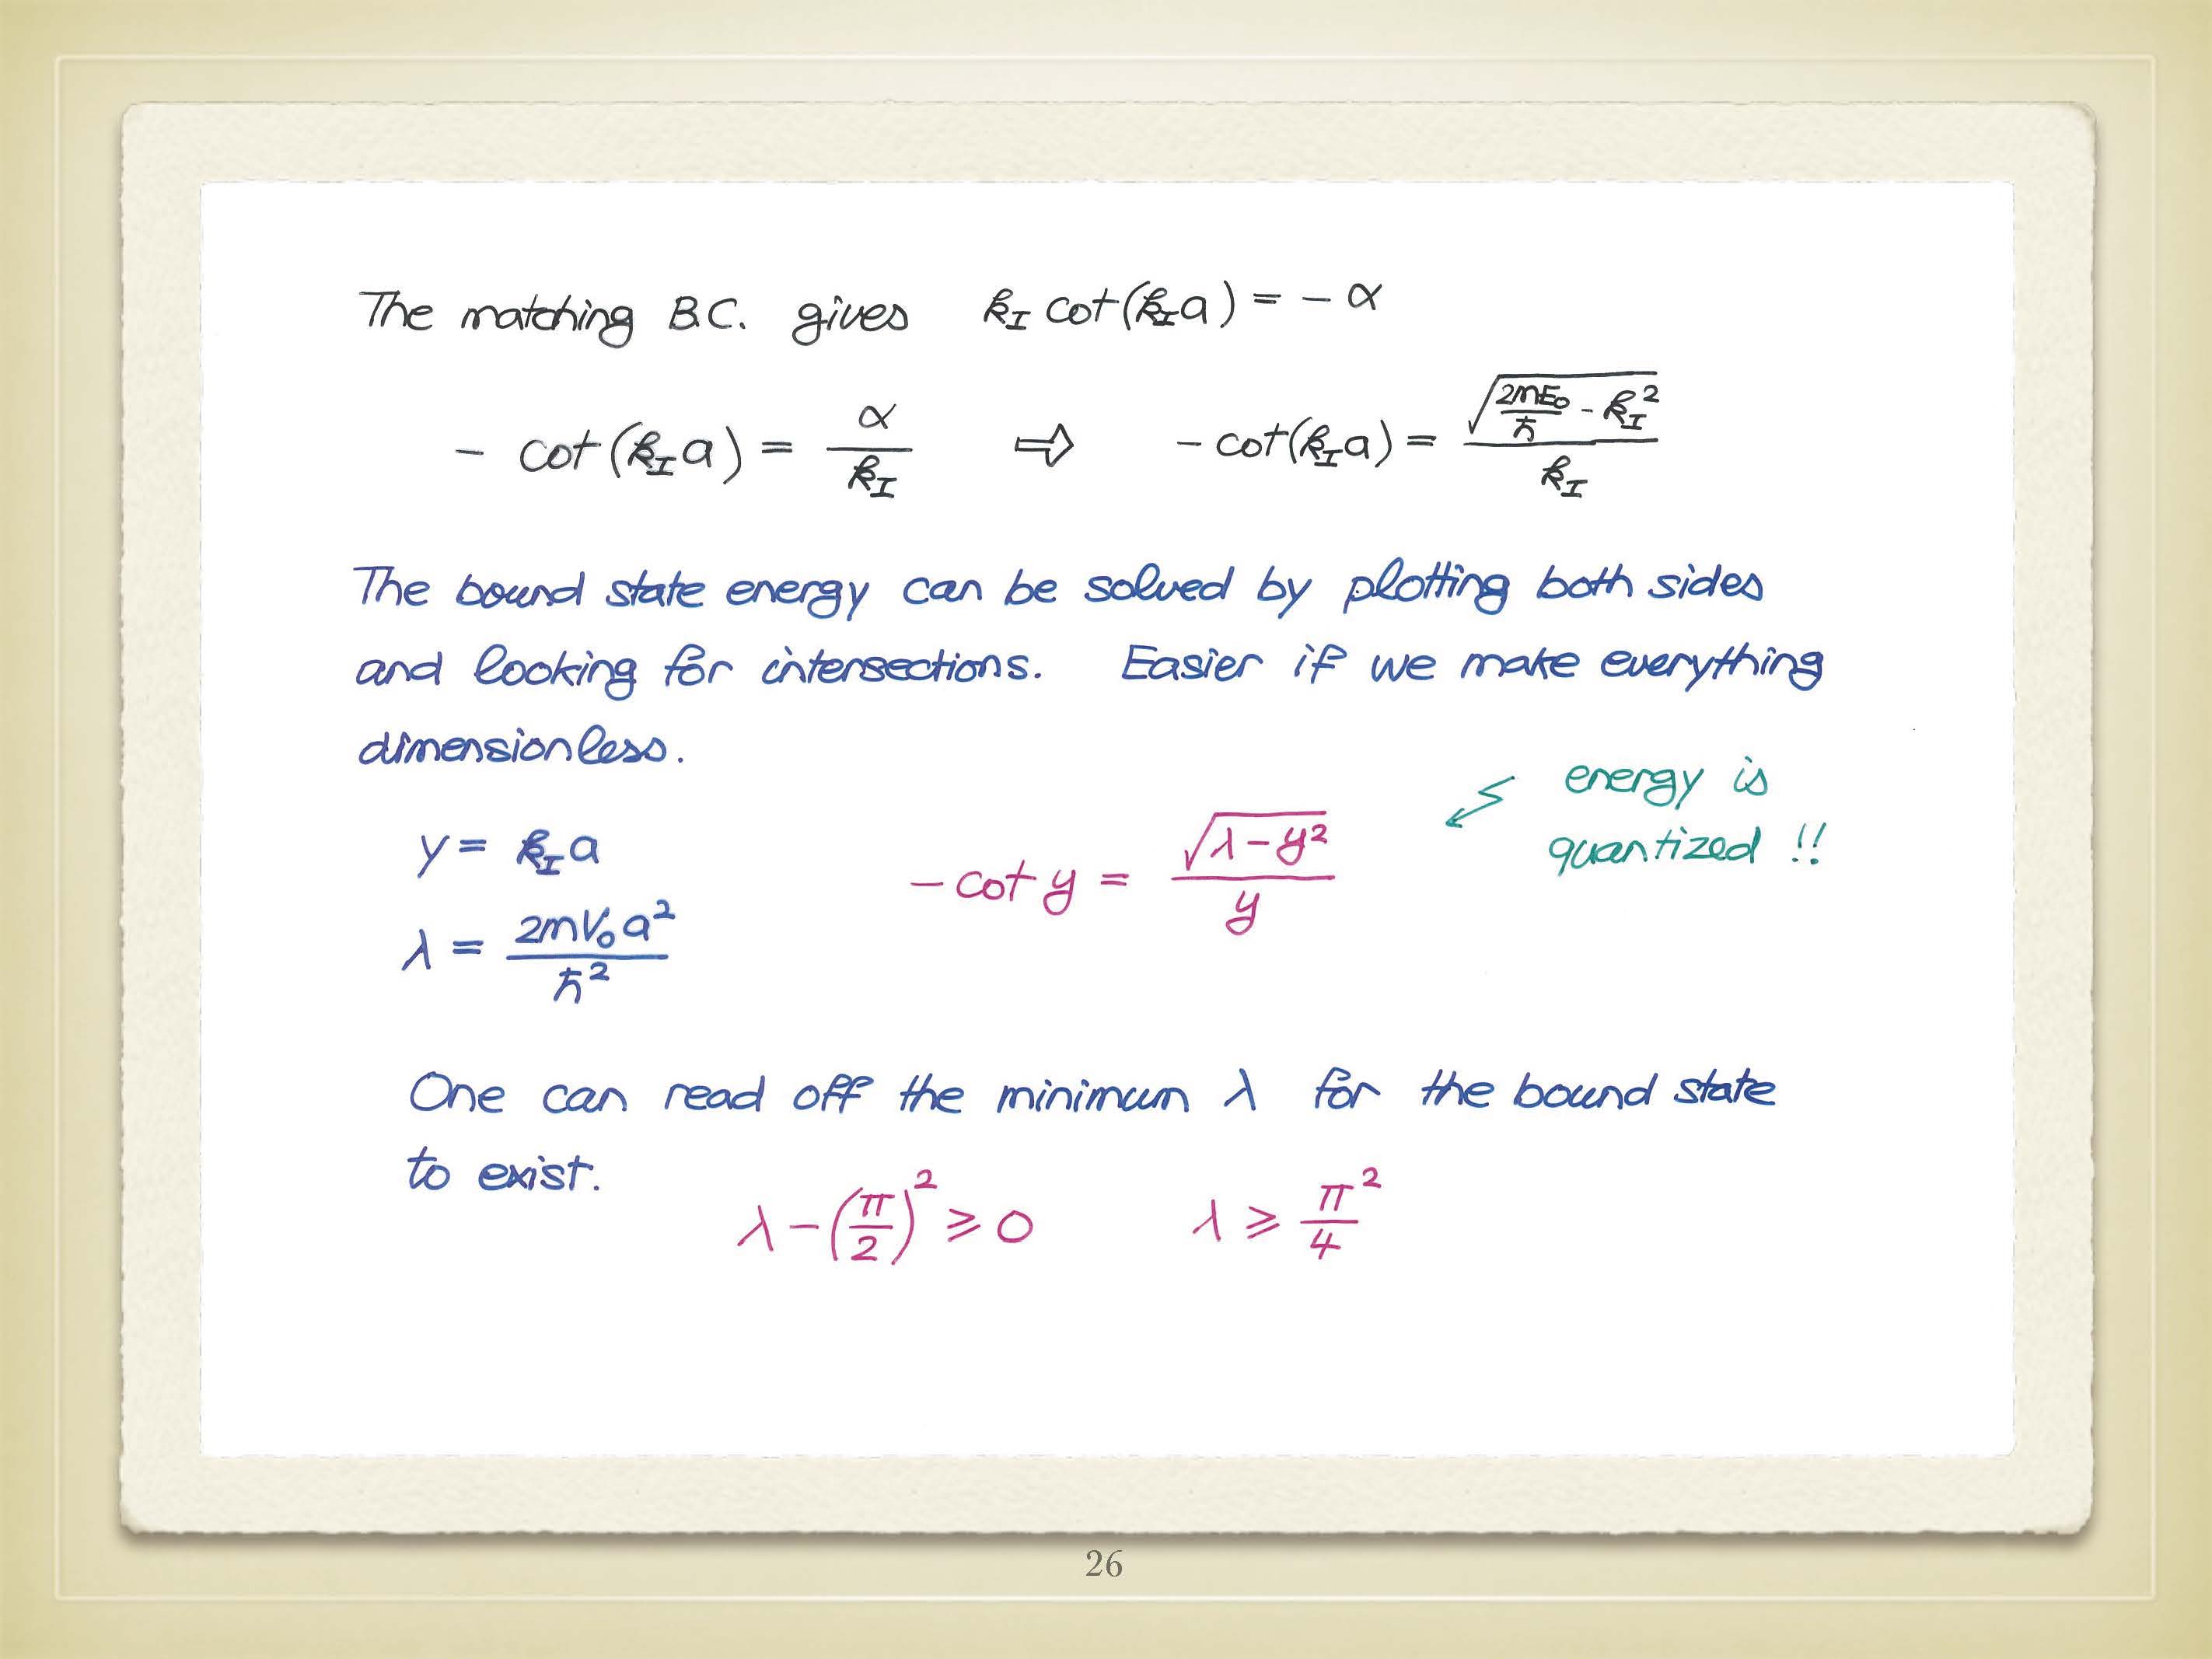 The matching B.C. gives k_I cot(k_I a) = - α
- cot(k_I a) = α / k_I ⇨ - cot(k_I a) = √(2mE₀/ħ - k_I²) / k_I
The bound state energy can be solved by plotting both sides
and looking for intersections. Easier if we make everything
dimensionless.
energy is
quantized !!
y = k_I a
- cot y = √(λ - y²) / y
λ = 2mV₀a² / ħ²
One can read off the minimum λ for the bound state
to exist.
λ - (π/2)² ⩾ 0 λ ⩾ π²/4
26